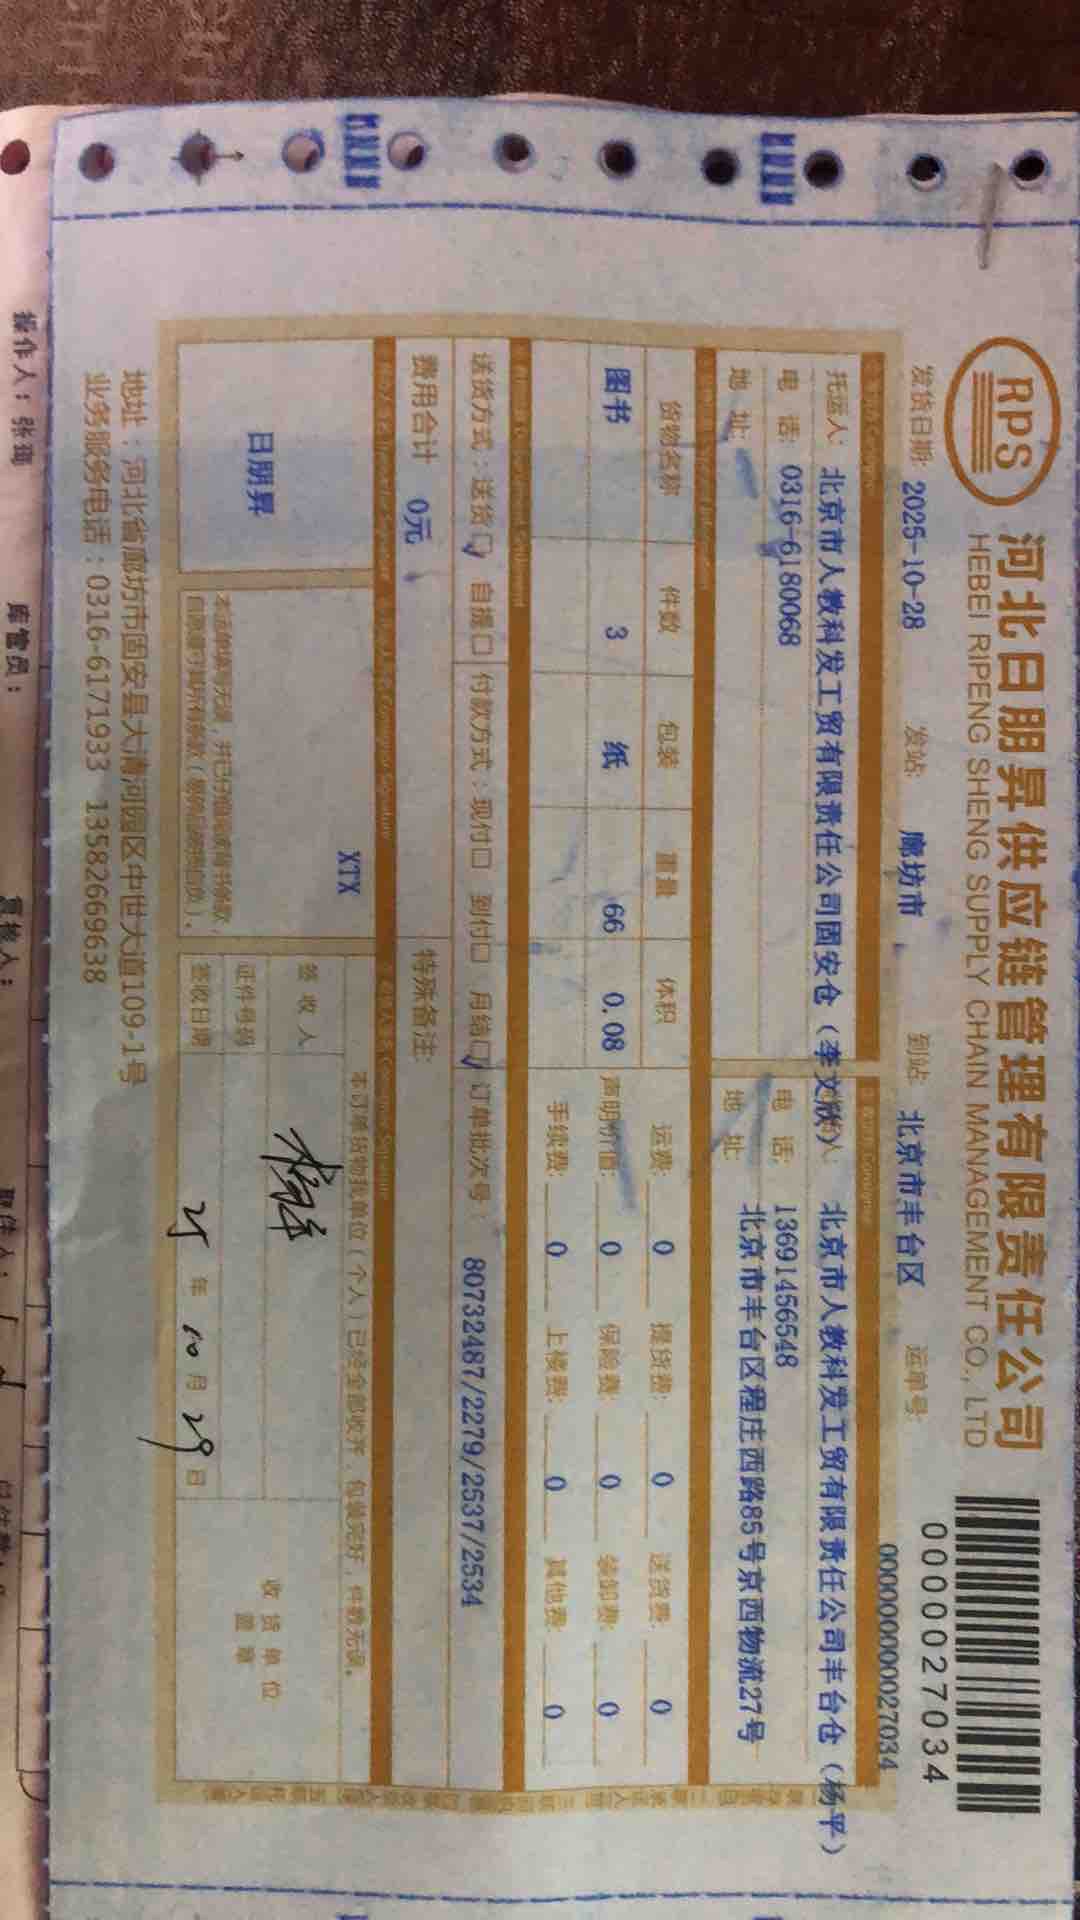 RPS
河北日朋昇供应链管理有限责任公司
HEBEI RIPENG SHENG SUPPLY CHAIN MANAGEMENT CO., LTD
0000027034
发货日期: 2025-10-28 发站: 廊坊市 到站: 北京市丰台区 运单号: 000000000027034
托运人: 北京市人教科发工贸有限责任公司固安仓（李文欣） 北京市人教科发工贸有限责任公司丰台仓（杨平）
电 话: 0316-6180068 电 话: 13691456548
地 址: 地 址: 北京市丰台区程庄西路85号京西物流27号
货物名称 件数 包装 重量 体积 运费: 0 提货费: 0 送货费: 0
图书 3 纸 66 0.08 声明价值: 0 保险费: 0 装卸费: 0
手续费: 0 上楼费: 0 其他费: 0
送货方式：送货☑ 自提□ 付款方式：现付□ 到付□ 月结☑ 订单批次号： 80732487/2279/2537/2534
费用合计 0元 特殊备注:
XTX
本订单货物我单位（个人）已经全部收齐，包装完好，件数无误。
日朋昇
签 收 人
证件号码
签收日期 25 年 10 月 29 日
收 货 单 位
盖 章
地址：河北省廊坊市固安县大清河园区中世大道109-1号
业务服务电话：0316-6171933 13582669638
操作人：张珣 库管员：